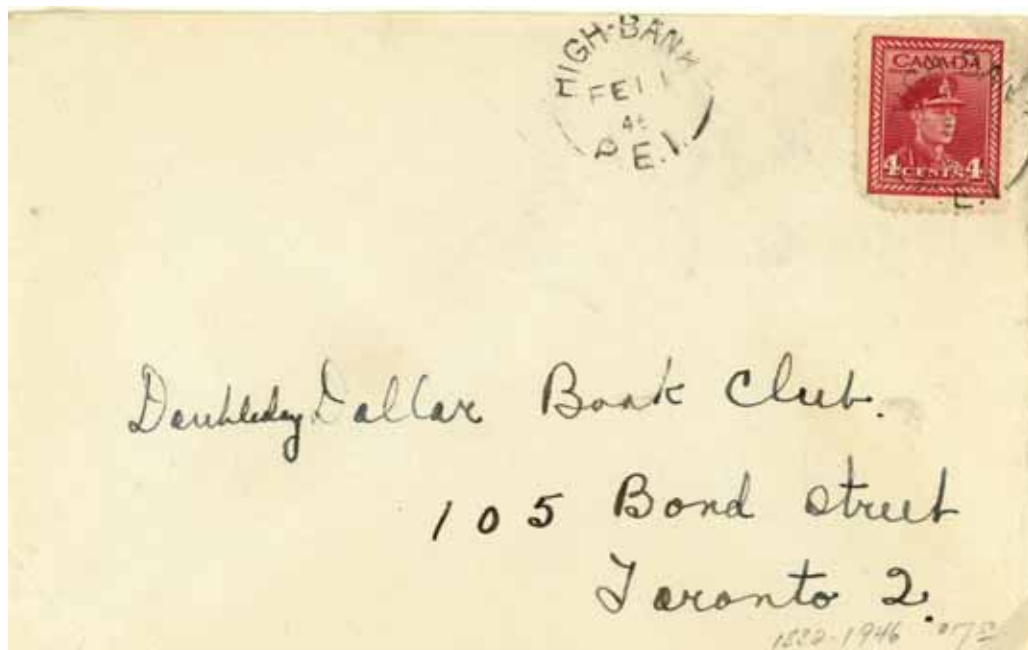 HIGH-BANK
FE 11
P.E.I.
CANADA
4 CENTS 4
Doubleday Dollar Book Club.
105 Bond Street
Toronto 2.
1882-1946